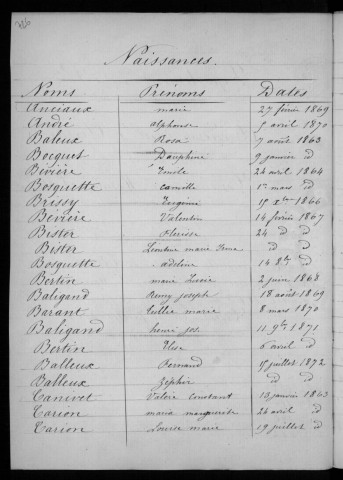 Naissances.
Noms Prénoms Dates
Anciaux marie 27 février 1869
André alphonse 5 avril 1870
Baleux Rosa 7 août 1863
Bocquet Dauphine 9 janvier d
Bévière Emile 24 avril 1864
Bosquette camille 1er mars d
Brissy Eugénie 15 Xbre 1866
Bévière Valentin 14 février 1867
Bister 24 d d
Bister Léontine marie d d
Bosquette adeline 14 8bre d
Bertin marie Lucie 2 juin 1868
Baligand Remy joseph 18 août 1869
Barant marie 8 mars 1870
Baligand henri jos. 11 9bre 1871
Bertin Elise 6 avril d
Balleux Fernand 15 juillet 1872
Balleux Zéphir d d
Canivet Valère constant 13 janvier 1863
Carion maria marguerite 24 avril d
Carion Louise marie 19 juillet d